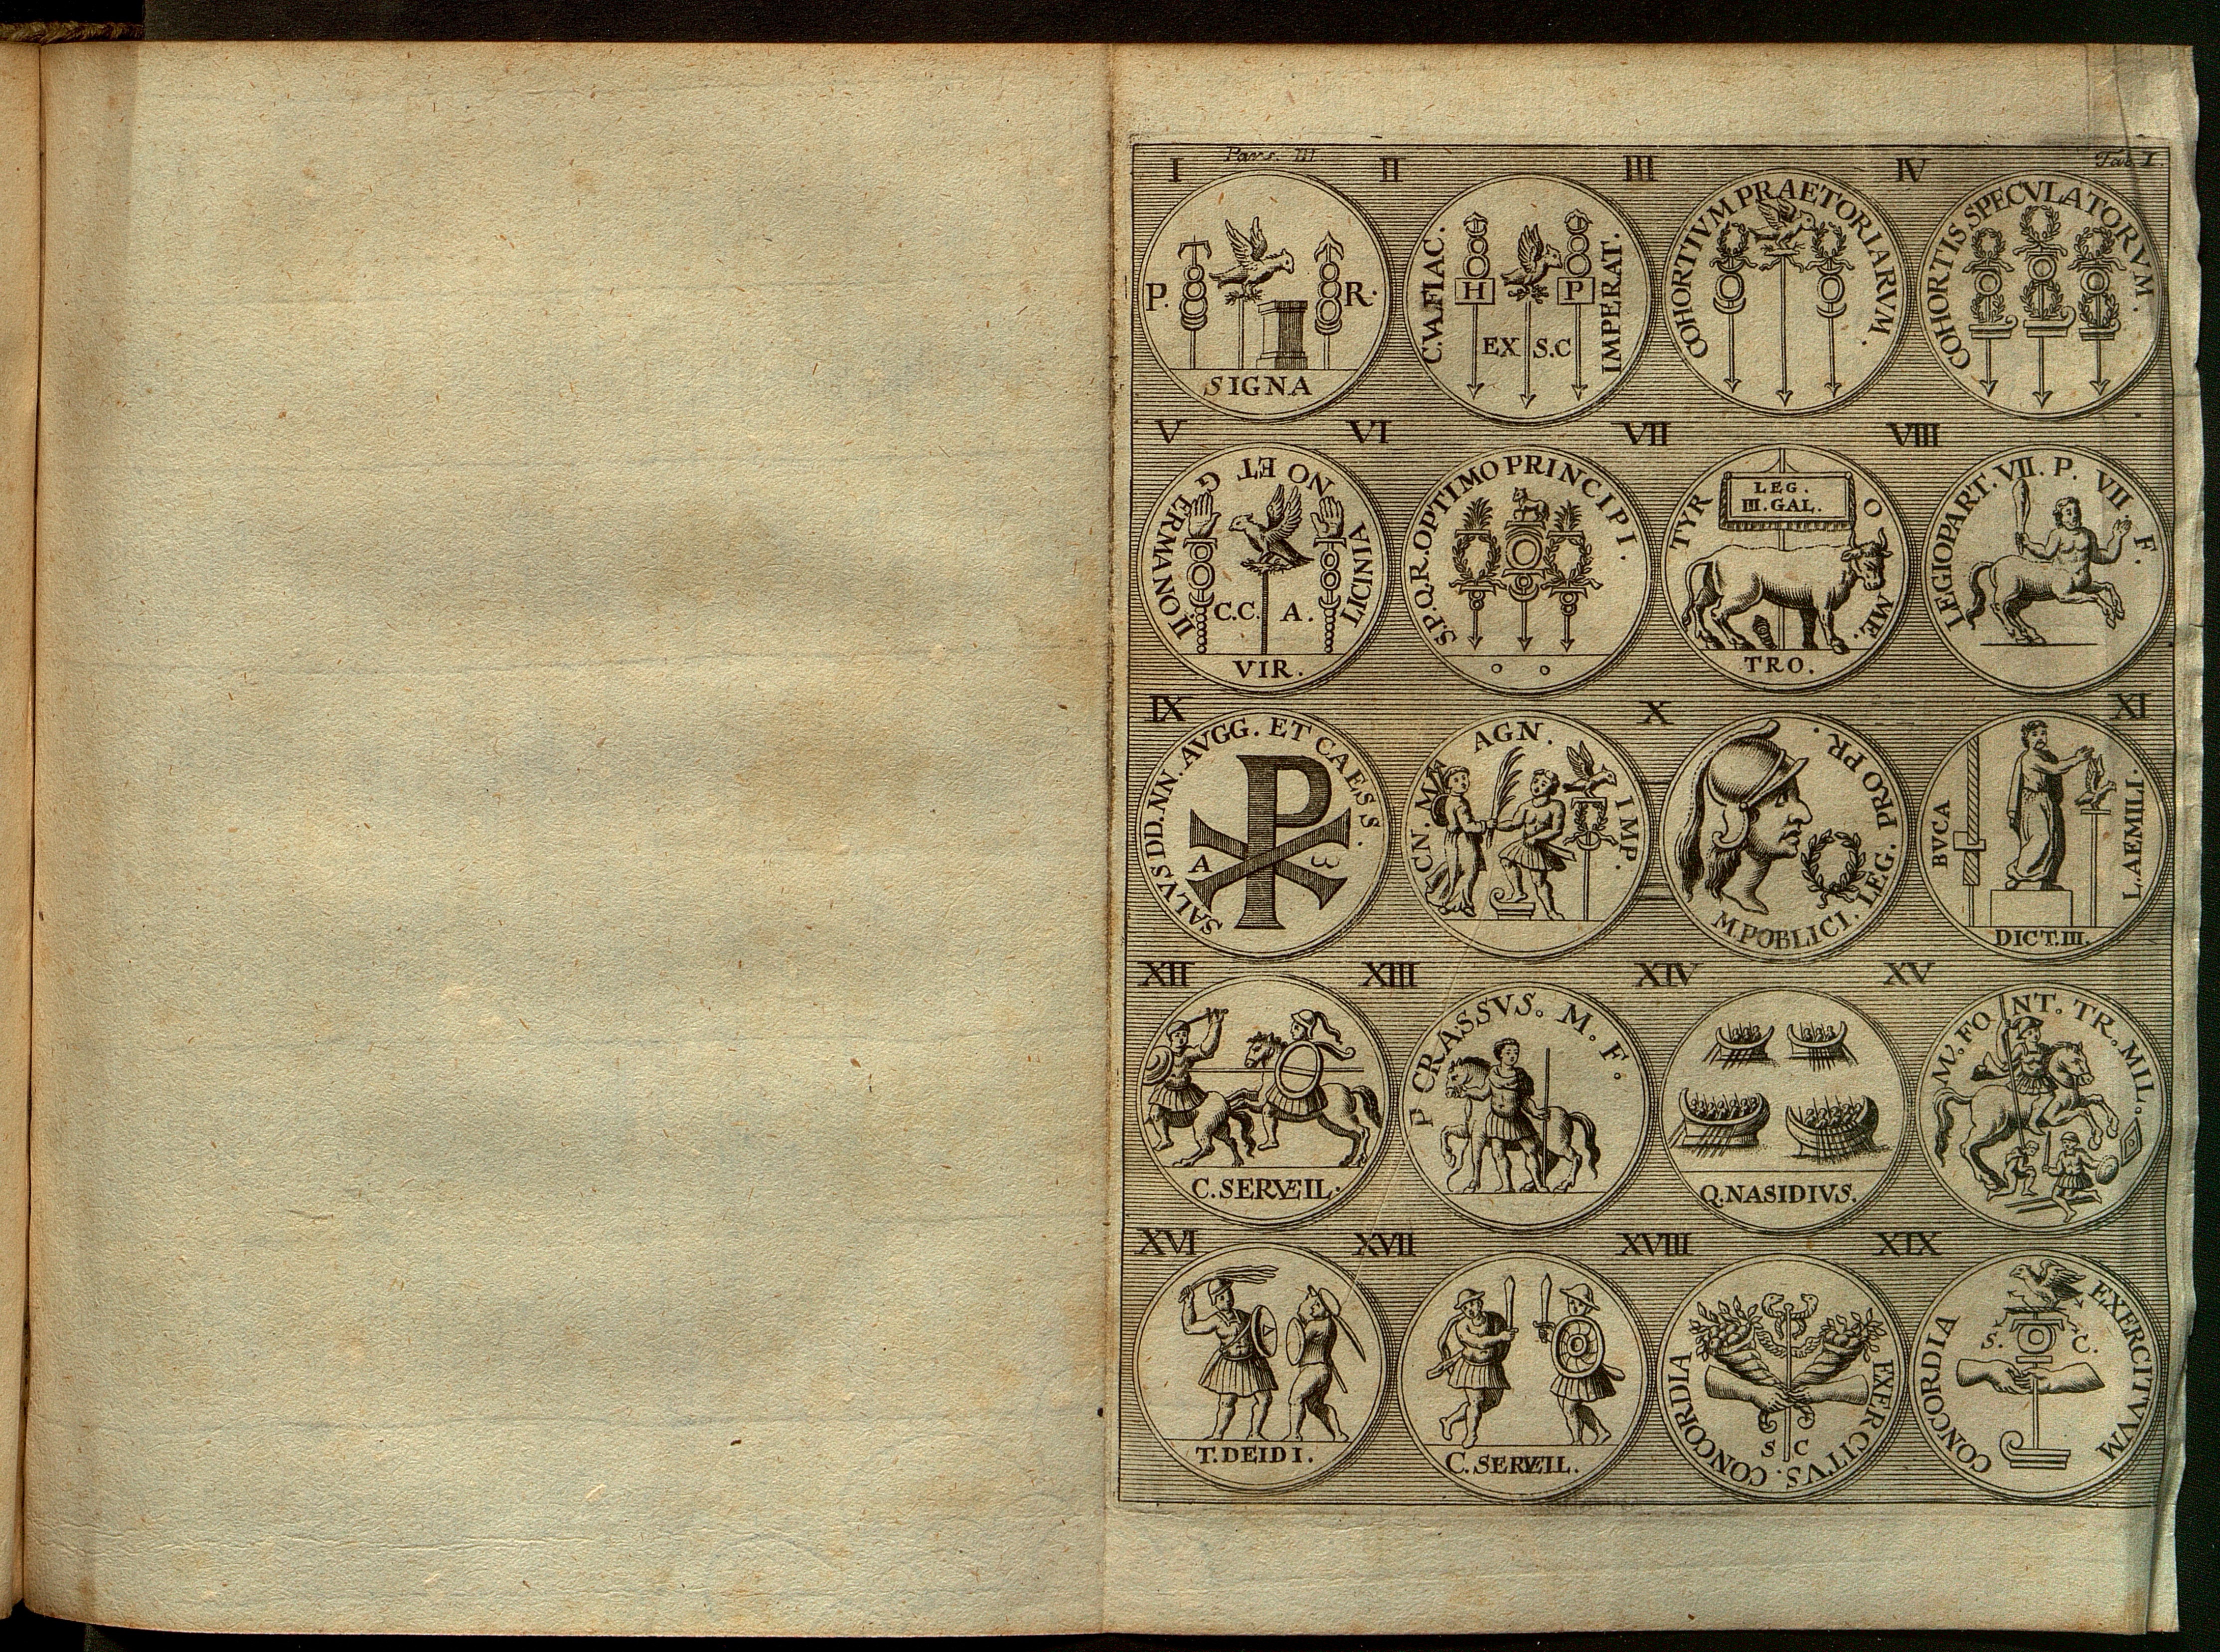 I Pars. III II III IV Tab I.
P. R.
SIGNA
C.VA.FLAC. IMPERAT.
H P
EX S.C
COHORTIVM PRAETORIARVM.
COHORTIS SPECVLATORVM.
V VI VII VIII
II.ONI GERMANO ET G
NO ET
VINICILI
C.C. A.
VIR.
S.P.Q.R. OPTIMO PRINCIPI.
TYR O ME.
LEG.
III.GAL.
TRO.
LEGIO PART. VII. P. VII. F.
IX X XI
SALVS DD.NN. AVGG. ET CAESS.
A ω
CN. MAGN. IMP.
M.POBLICI. LEG. PRO PR.
BVCA L.AEMILI.
DICT.III.
XII XIII XIV XV
C.SERVEIL.
P CRASSVS. M. F.
Q.NASIDIVS.
M. FONT. TR. MIL.
XVI XVII XVIII XIX
T.DEIDI.
C.SERVEIL.
CONCORDIA EXERCITVS.
S C
CONCORDIA EXERCITVVM
S. C.